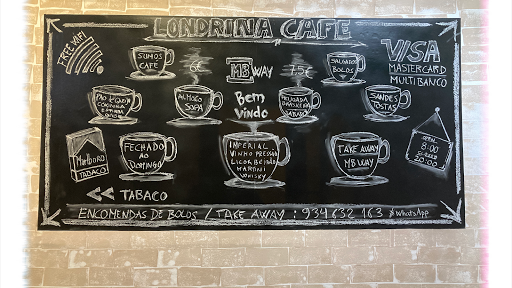 LONDRINA CAFE
FREE WIFI
SUMOS
CAFE
6€
MB WAY
7.5€
SALGADOS
BOLOS
VISA
MASTERCARD
MULTIBANCO
PÃO DE QUEIJO
COXINHA
ALMOÇO
SOPA
Bem
Vindo
FEIJOADA
BRASILEIRA
SABADO
SANDES
TOSTAS
Marlboro
TABACO
FECHADO
AO
DOMINGO
IMPERIAL
VINHO PRESSÃO
LICOR BEIRÃO
MARTINI
WHISKY
TAKE AWAY
MB WAY
OPEN
8:00
20:00
<< TABACO
ENCOMENDAS DE BOLOS / TAKE AWAY : 934 632 163 WhatsApp